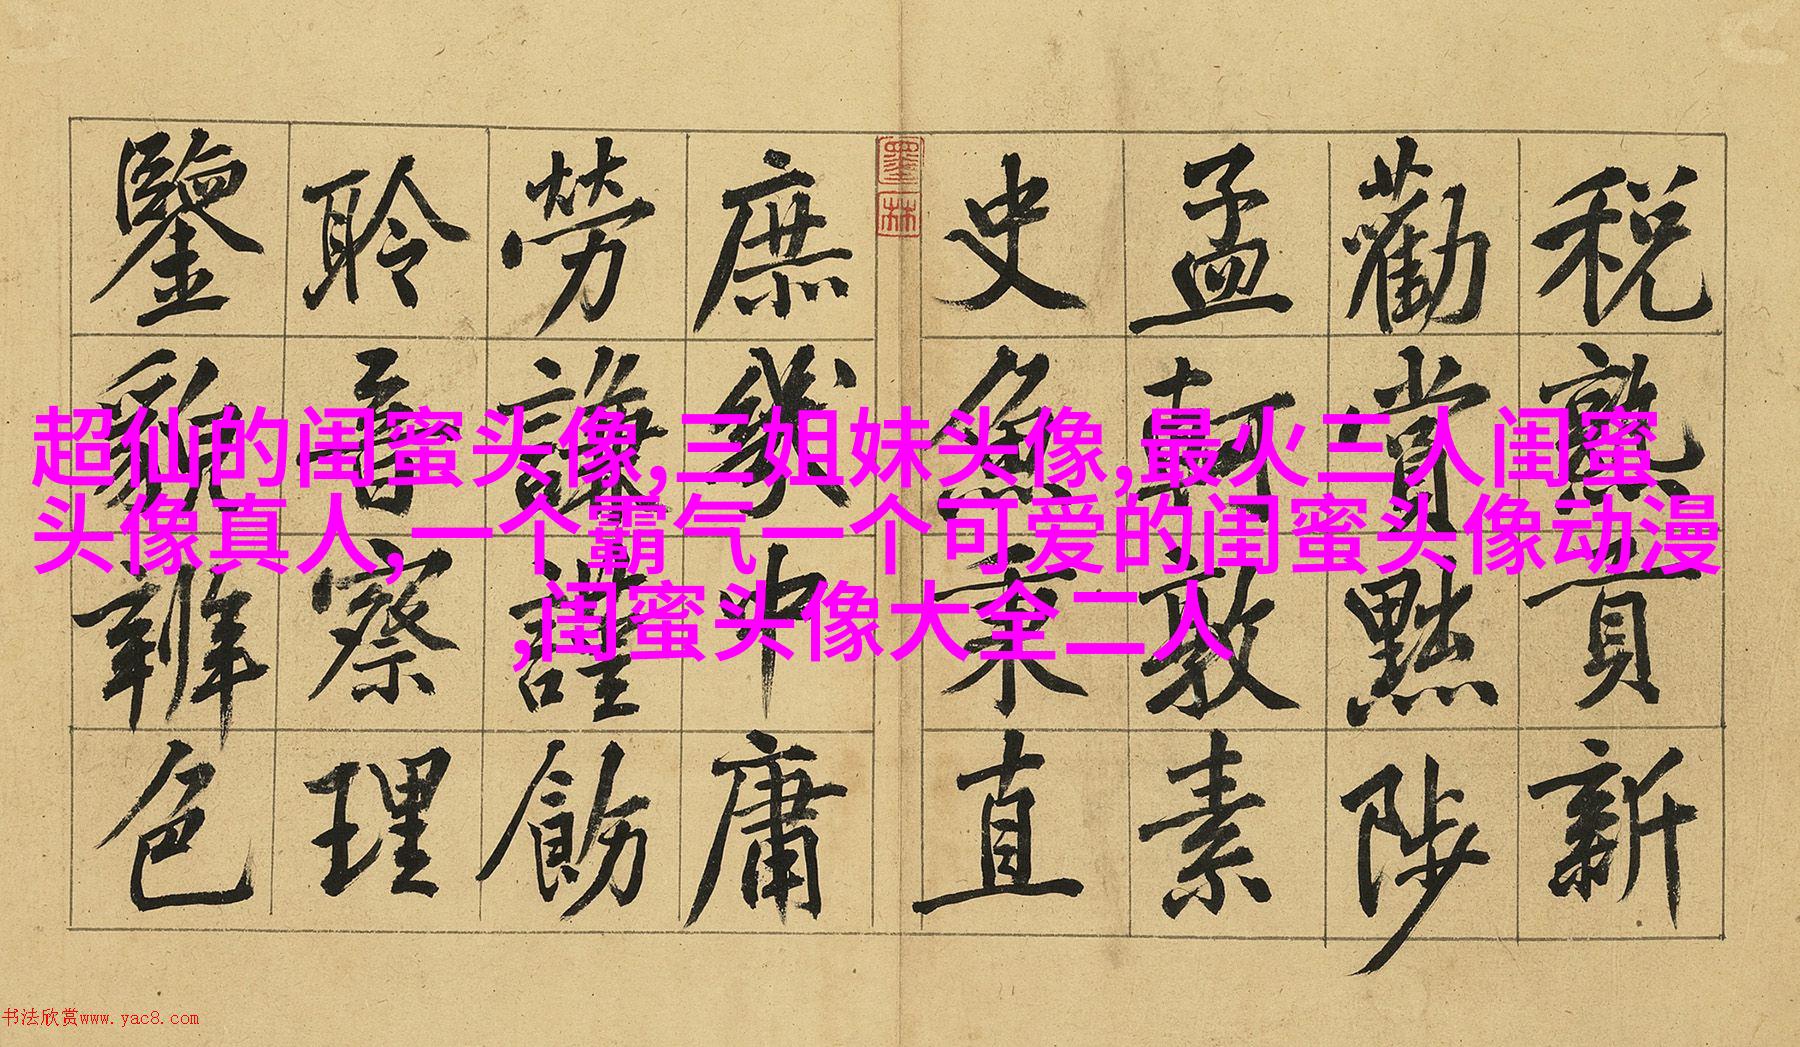 税熟貢新
勸賞黜陟
孟軻敦素
史魚秉直
墨林
庶幾中庸
勞謙謹飭
聆音察理
鑒貌辨色
超仙的闺蜜头像,三姐妹头像,最火三人闺蜜
头像真人,一个霸气一个可爱的闺蜜头像动漫
,闺蜜头像大全二人
书法欣赏www.yac8.com